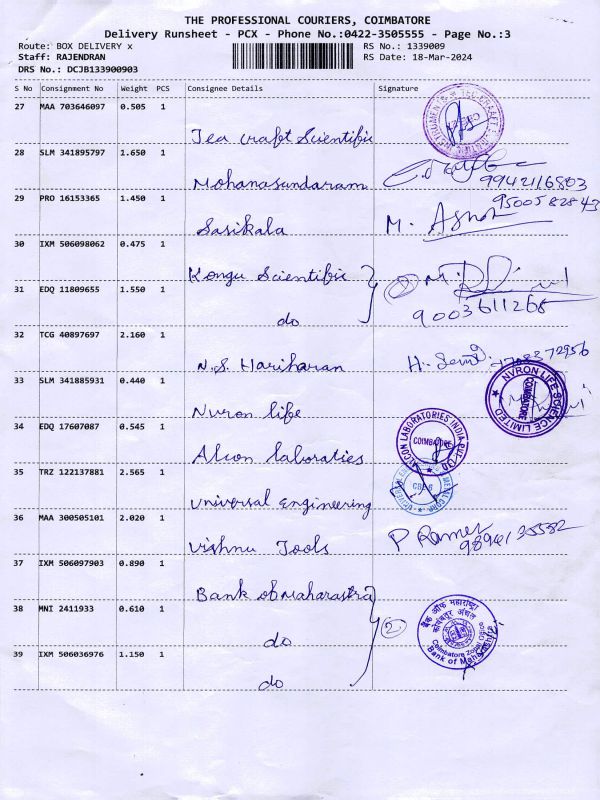 THE PROFESSIONAL COURIERS, COIMBATORE
Delivery Runsheet - PCX - Phone No.:0422-3505555 - Page No.:3
Route: BOX DELIVERY x
RS No.: 1339009
Staff: RAJENDRAN
RS Date: 18-Mar-2024
DRS No.: DCJB133900903
S No Consignment No Weight PCS Consignee Details Signature
27 MAA 703646097 0.505 1
Tea craft Scientific
28 SLM 341895797 1.650 1
Mohanasundaram
9942116803
29 PRO 16153365 1.450 1
9500582843
Sasikala M. Ashok
30 IXM 506098062 0.475 1
Kongu Scientific
31 EDQ 11809655 1.550 1
do 9003611268
32 TCG 40897697 2.160 1
N.S. Hariharan H.
33 SLM 341885931 0.440 1
Nuron life
NVRON LIFE SCIENCE LIMITED
COIMBATORE
34 EDQ 17607087 0.545 1
Alcon laboraties
ALCON LABORATORIES INDIA PVT. LTD
COIMBATORE
35 TRZ 122137881 2.565 1
Universal Engineering
CBE-6
36 MAA 300505101 2.020 1
Vishnu Tools P Ramesh
37 IXM 506097903 0.890 1
Bank of Maharastra
38 MNI 2411933 0.610 1
do 2
बैंक ऑफ महाराष्ट्र
Coimbatore Zonal Office
Bank of Maharashtra
39 IXM 506036976 1.150 1
do